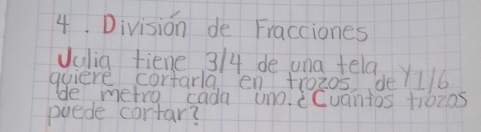 4. División de Fracciones
Julia tiene 3/4 de una tela y
quiere cortarla en trozos de 1/6
de metro cada uno. ¿Cuántos trozos
puede cortar?